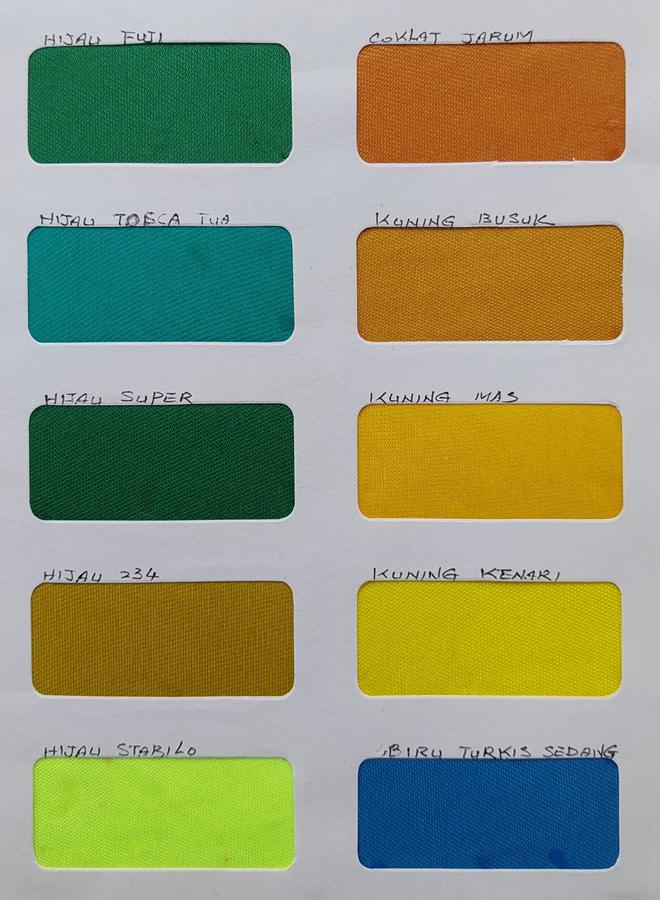 HIJAU FUJI
COKLAT JARUM
HIJAU TOSCA TUA
KUNING BUSUK
HIJAU SUPER
KUNING MAS
HIJAU 234
KUNING KENARI
HIJAU STABILO
BIRU TURKIS SEDANG